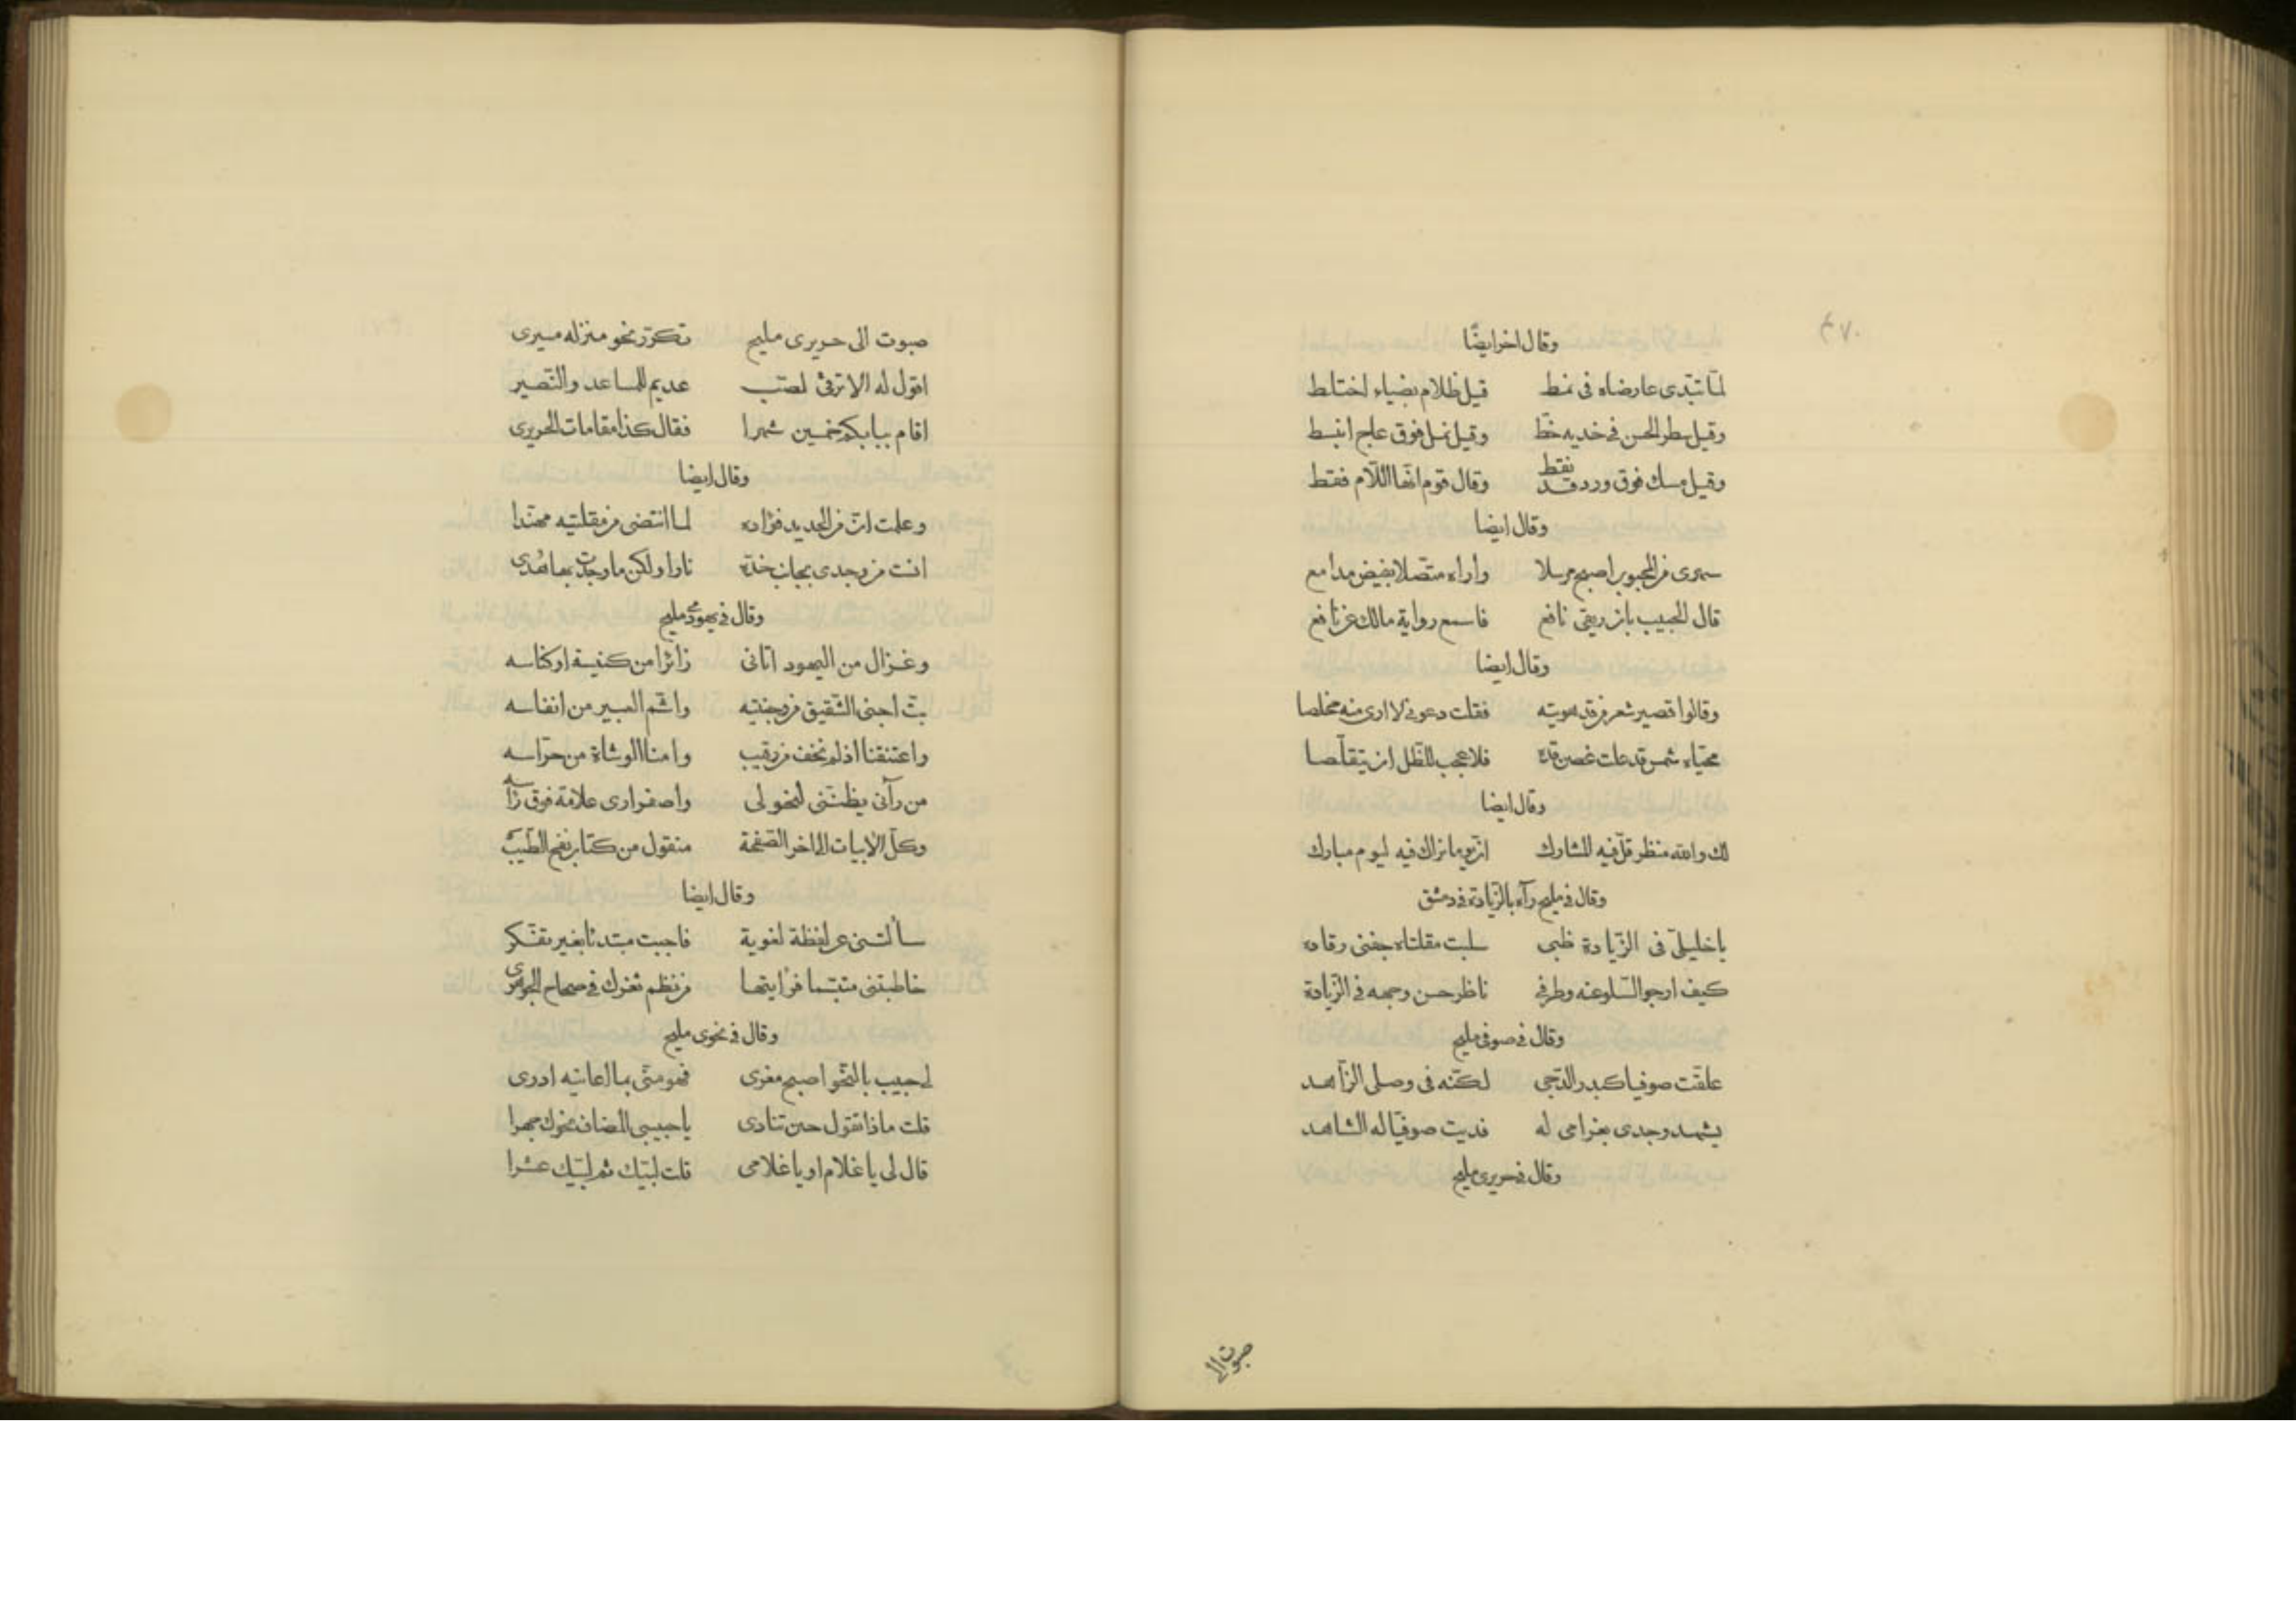 ٤٧٠
وقال اخر ايضًا
لمّا تبّدى عارضاه فى نمط قيل ظلام بضياء اختلط
وقيل سطر الحسن فى خديه خطّ وقيل نمل فوق عاج انبسط
وقيل مسك فوق ورد قد نقط وقال قوم انّها اللّام فقط
وقال ايضا
سهرى من المحبوب اصبح مرسلا واراه متّصلا بفيض مدامع
قال الحبيب بان ريقى نافع فاسمع رواية مالك عن نافع
وقال ايضا
وقالوا قصير شعر من قد هويته فقلت دعونى لا ارى منه مخلصا
محيّاه شمس قد علت غصن قدّه فلا عجب للظّل ان يتقلّصا
وقال ايضا
لك والله منظر قلّ فيه المشارك انّ يوما نراك فيه ليوم مبارك
وقال فى مليح رآه بالزّيادة فى دمشق
يا خليلىّ فى الزّيادة ظبى سلبت مقلتاه جفنى رقاده
كيف ارجو السّلو عنه وطرفى ناظر حسن وجهه فى الزّيادة
وقال فى صوفى مليح
علقت صوفيا كبدر الدّجى لكنّه فى وصلى الزّاهد
يشهد وجدى بغرامى له فديت صوفيّا له الشاهد
وقال فى حريرى مليح
صبوت الى
صبوت الى حريرى مليح تكرّر نحو منزله مسيرى
اقول له الا ترثى لصبّ عديم للمساعد والنّصير
اقام ببابكم خمسين شهرا فقال كذا مقامات الحريرى
وقال ايضا
وعلمت انّ من الحديد فؤاده لما انتضى من مقلتيه مهنّدا
انست من وجدى بجانب خدّه نارا ولكن ما وجدت بها هُدى
وقال فى يهودى مليح
وغزال من اليهود اتانى زائرا من كنيسة او كناسه
بتّ اجنى الشّقيق من وجنتيه واشّم العبير من انفاسه
واعتنقنا اذ لم نخف من رقيب وامنا الوشاة من حرّاسه
من رآنى يظنّنى لنحولى واصفرارى علامة فوق رأسه
وكلّ الابيات الى اخر الصّفحة منقول من كتاب نفح الطّيب
وقال ايضا
سألتنى عن لفظة لغوية فاجبت مبتدئا بغير تفكّر
خاطبتنى متبسّما فرأيتها من نظم ثغرك فى صحاح الجوهرى
وقال فى نحوى مليح
لى حبيب بالنّحو اصبح مغرى فهو منّى بما اعانيه ادرى
قلت ماذا تقول حين تنادى يا حبيبى المضاف نحوك جهرا
قال لى يا غلام او يا غلامى قلت لبّيك ثم لبّيك عشرا